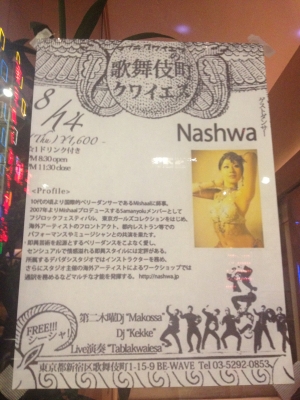 歌舞伎町
クワイエス
8/14
ゲストダンサー
Nashwa
1ドリンク付き
PM 8:30 open
PM 11:30 close
<Profile>
10代の頃より国際的ベリーダンサーであるMohaelに師事。
フジロックフェスティバル、東京ガールズコレクションをはじめ、
海外アーティストのフロントアクト、都内レストラン等での
パフォーマンスやミュージシャンとの共演を重ねた。
都異音楽を起源とするベリーダンスをこよなく愛し、
センシュアルで情感溢れる都異スタイルには定評がある。
所属するデバダシスタジオではインストラクターを務め、
さらにスタジオ主催の海外アーティストによるワークショップでは
通訳を務めるなどマルチな才能を発揮する。 http://nashwa.jp
FREE!!!
シーシャ!
第二木曜Dj "Makossa"
Dj "Kekke"
Live演奏 "Tablakwaiesa"
東京都新宿区歌舞伎町1-15-9 BE-WAVE Tel 03-5292-0853